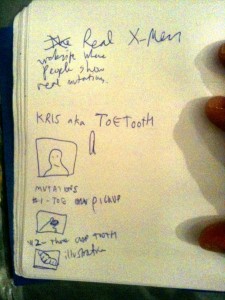 Real X-Men
website where
people show
real mutations.
KRIS aka TOETOOTH
MUTATIONS
#1 - TOE PICKUP
#2 - TOOTH
illustration